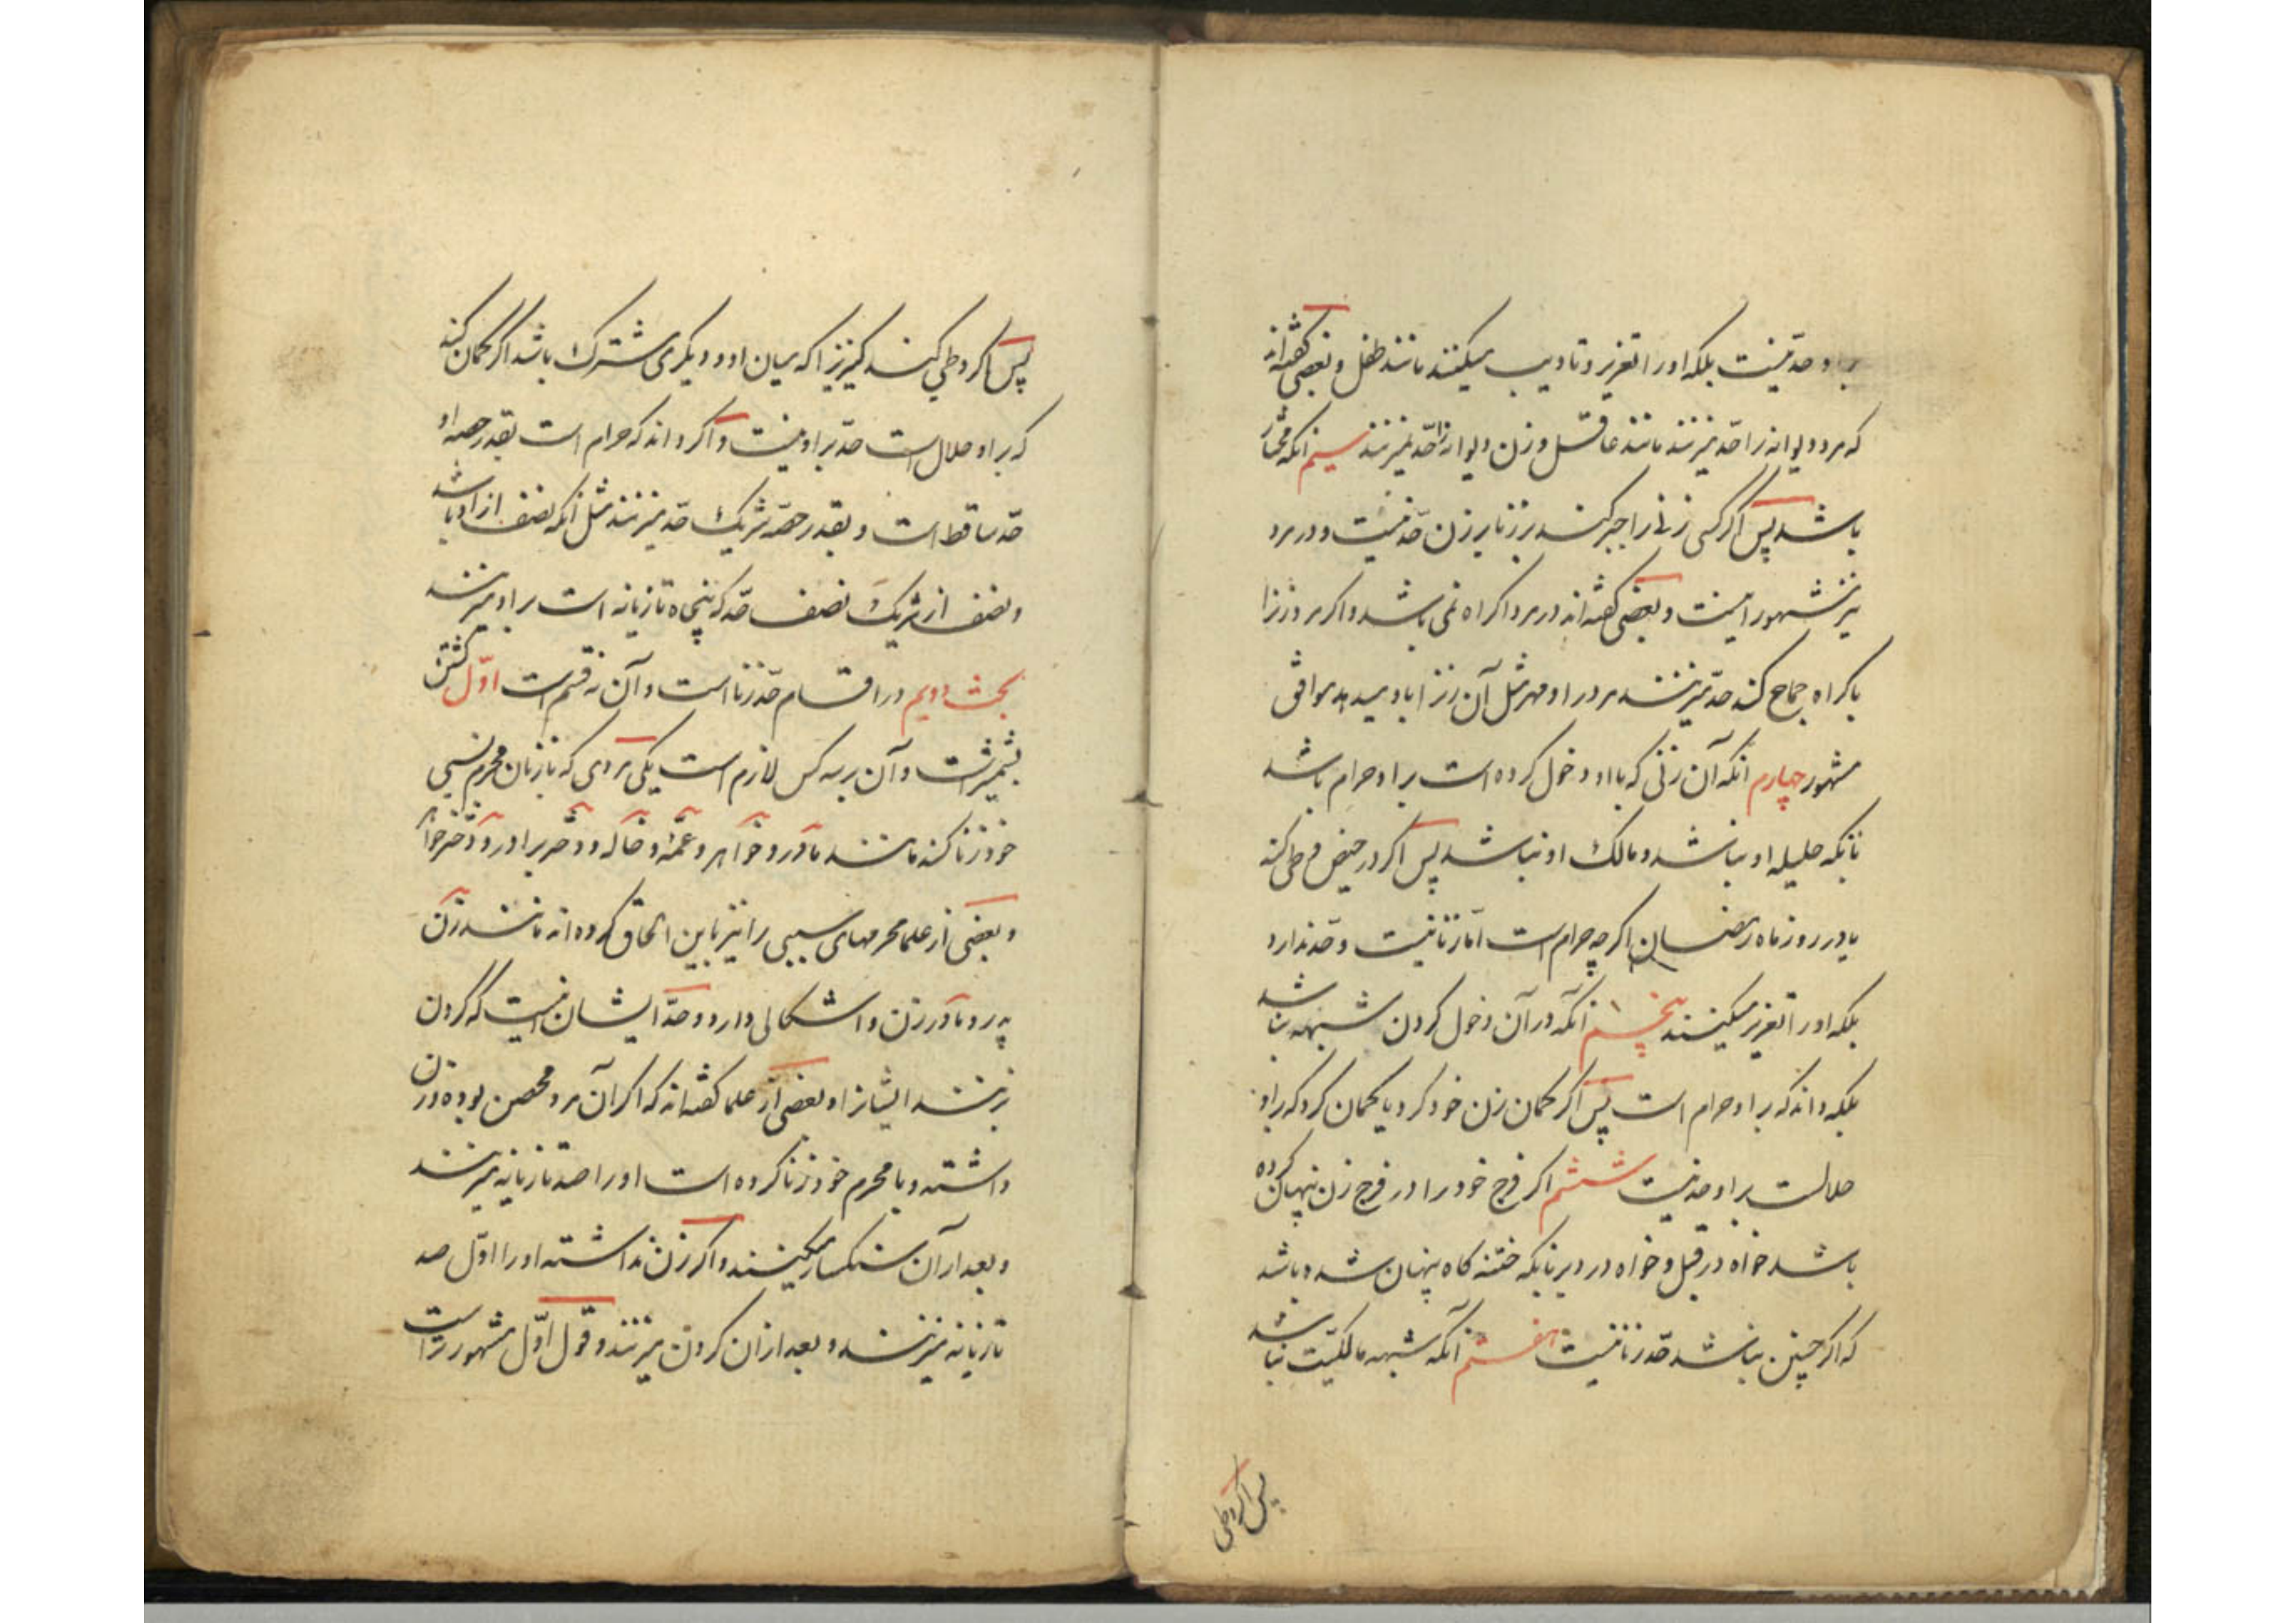 بر او حد نیست بلکه او را تعزیر و تادیب میکنند مانند طفل و بعضی گفته‌اند
که مرد دیوانه را حد میزنند مانند عاقل و زن دیوانه را حد نمیزنند سیم آنکه مختار
باشد پس اگر کسی زنی را جبر کند بر زنا بر زن حد نیست و در مرد
نیز مشهور اینست و بعضی گفته‌اند در مرد اکراه نمی باشد و اگر مرد زنرا
باکراه جماع کند حد میزنند مرد را و مهر مثل آن زنرا باو میدهد موافق
مشهور چهارم آنکه آن زنی که با او دخول کرده است بر او حرام باشد
بانکه حلیله او نباشد و مالک او نباشد پس اگر در حیض وطی کند
یا در روز ماه رمضان اگرچه حرام است اما زنا نیست و حد ندارد
بلکه او را تعزیر میکنند پنجم آنکه در آن دخول کردن شبهه نباشد
بلکه داند که بر او حرام است پس اگر گمان زن خود کرد یا گمان کرد که بر او
حلالست بر او حد نیست ششم اگر فرج خود را در فرج زن پنهان کرده
باشد خواه در قبل و خواه در دبر بانکه ختنه گاه پنهان شده باشد
که اگر چنین نباشد حد زنا نیست هفتم آنکه شبهه مالکیت نباشد
پس اگر وطی
پس اگر وطی کند کنیزیرا که میان او و دیگری مشترک باشد اگر گمان کند
که بر او حلال است حد بر او نیست و اگر داند که حرام است بقدر حصه او
حد ساقط است و بقدر حصه شریک حد میزنند مثل آنکه نصف از او باشد
و نصف از شریک نصف حد که پنجاه تازیانه است بر او میزنند
بحث دویم در اقسام حد زنا است و آن نه قسم است اول کشتن
بشمشیر است و آن بر سه کس لازم است یکی مردی که با زنان محرم نسبی
خود زنا کند مانند مادر و خواهر و عمه و خاله و دختر برادر و دختر خواهر
و بعضی از علما محرمهای سببی را نیز باین الحاق کرده اند مانند زن
پدر و مادر زن و اشکالی دارد و حد ایشان اینست که گردن
بزنند ایشانرا و بعضی از علما گفته‌اند که اگر آن مرد محصن بوده و زن
داشته و با محرم خود زنا کرده است او را صد تازیانه میزنند
و بعد از آن سنگسار میکنند و اگر زن نداشته او را اول صد
تازیانه میزنند و بعد از آن گردن میزنند و قول اول مشهور تر است